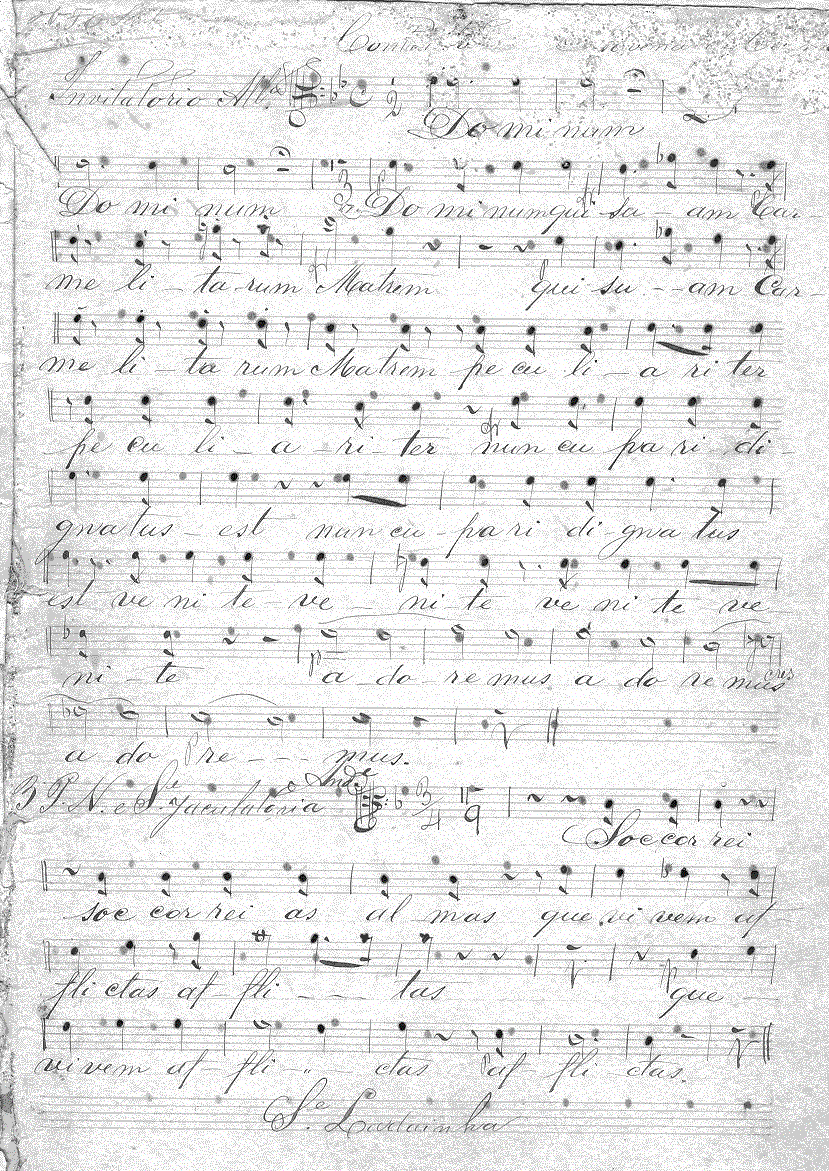 Invitatorio All.º
Do mi num
Do mi num Do mi num qui su - am Car -
me li - ta - rum Matrem qui su - - am Car -
me li - ta rum Matrem pe cu li - a ri ter
pe cu li - a - ri - ter nun cu pa ri di -
gna tus - est nun cu - pa ri di - gna tus
est ve ni te - ve - ni - te ve ni te ve
ni - te a - do - re mus a do re mus
cres
a do re - - - mus.
3 P. N. e S.e Jaculatoria And.e
3/4 9
Soccor rei
soc cor rei as al - mas que vi vem af -
fli ctas af - fli - - - tas que -
vi vem af - fli - - ctas af fli ctas.
S.e Ladainha